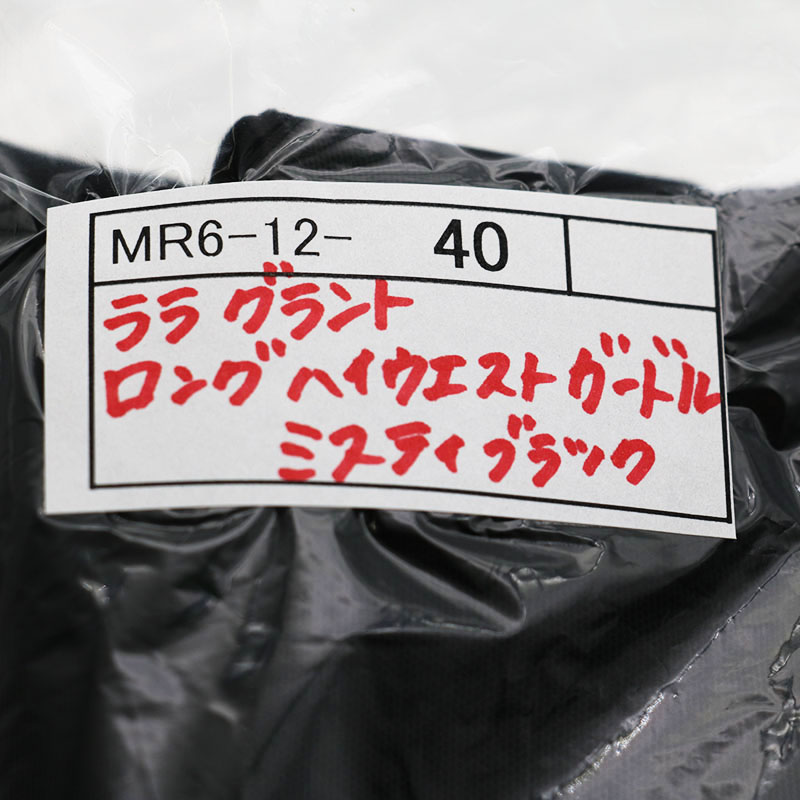 MR6-12- 40
ララグラント
ロングハイウエストガードル
ミスティブラック